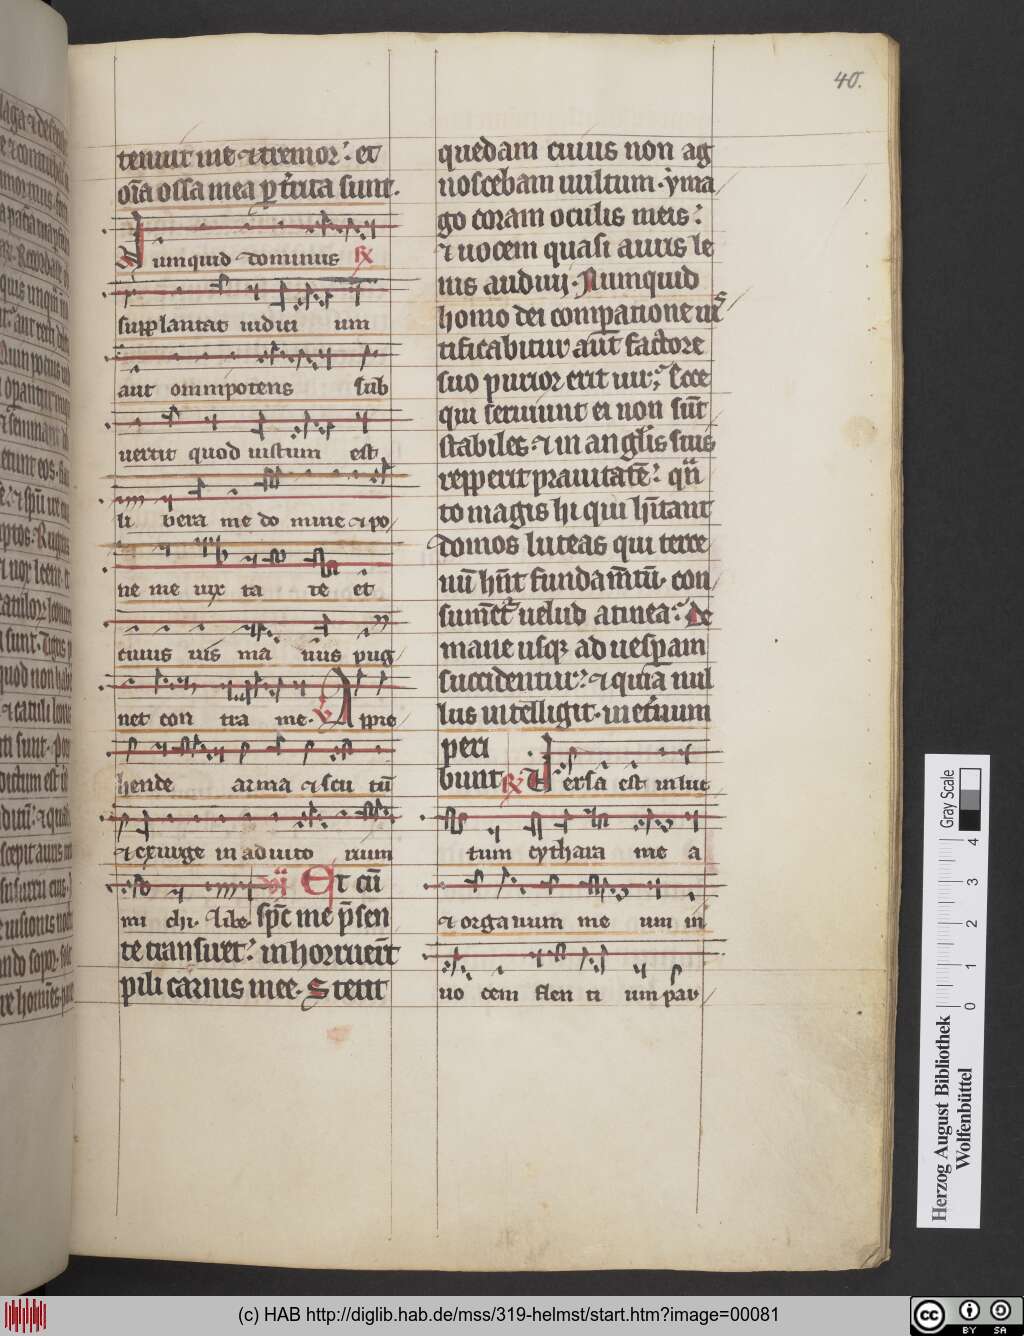 40.
tenuit me ⁊ tremor: et
o̅ia ossa mea ꝑt̅rita sunt.
Numquid dominus ℟
supplantat iudici um
aut omnipotens sub
uertit quod iustum est
li bera me do mine ⁊ po
ne me iux ta te et
cuius uis ma nus pug
net con tra me. V Appre
hende arma ⁊ scu tu̅
⁊ exurge in adiuto rium
mi chi. Libe. Et cu̅
sp̅c me p̅sen
te transiret: inhorruer̅t
pili carnis mee. Stetit
quedam cuius non ag
noscebam uultum. yma
go coram oculis meis:
⁊ uocem quasi auris le
nis audiui. Numquid
homo dei comparatione ius
tificabitur aut̅ factore
suo purior erit uir; Ecce
qui seruiunt ei non su̅t
stabiles ⁊ in angl̅is suis
repperit prauitate̅: qua̅
to magis hi qui h̅itant
domos luteas qui terre
nu̅ h̅nt fundam̅tu̅. con
sume̅tur uelud a tinea: De
mane usqꝫ ad uesꝑam
succidentur: ⁊ quia nul
lus intelligit. in et̅rnum
peri
bunt ℟ Uersa est in luc
tum cythara me a
⁊ organum me um in
uo cem flen ti um par
Gray Scale
0 1 2 3 4
Herzog August Bibliothek
Wolfenbüttel
(c) HAB http://diglib.hab.de/mss/319-helmst/start.htm?image=00081
cc BY SA